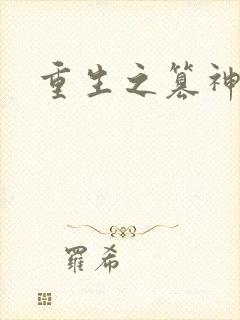 重生之篡神
羅希